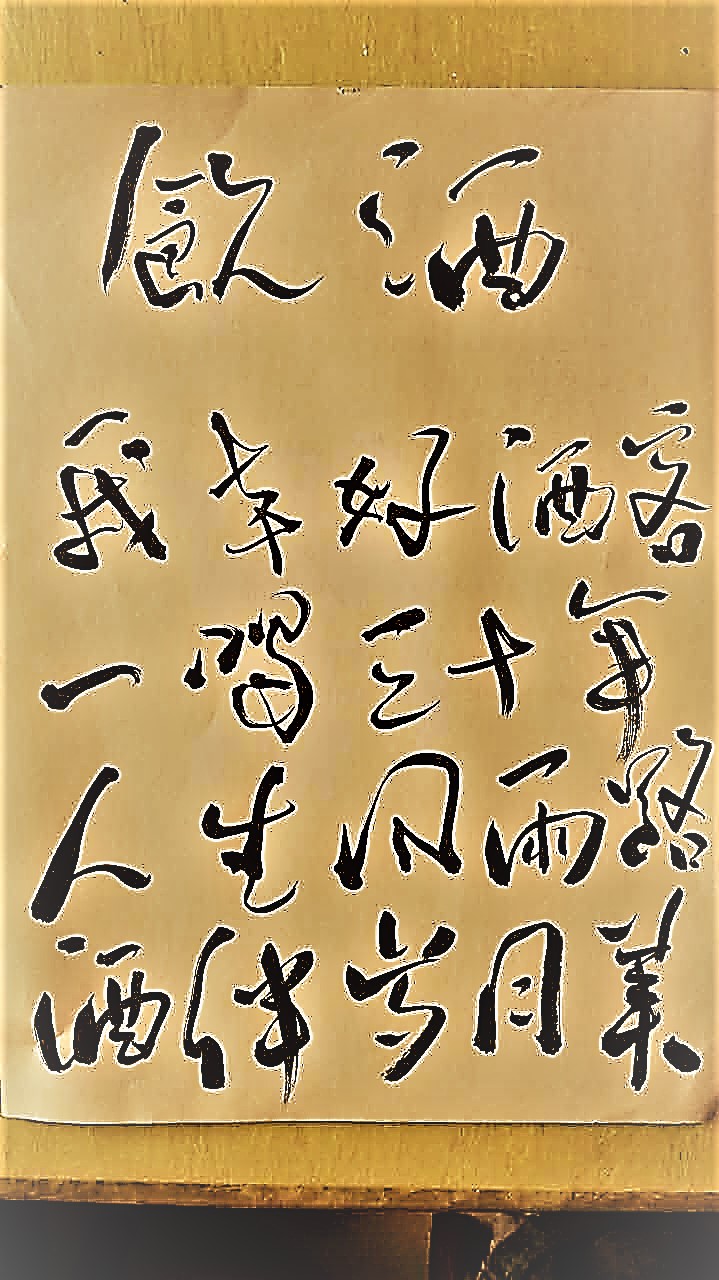 飲酒
我本好酒客
一喝三十年
人生风雨路
酒伴岁月美